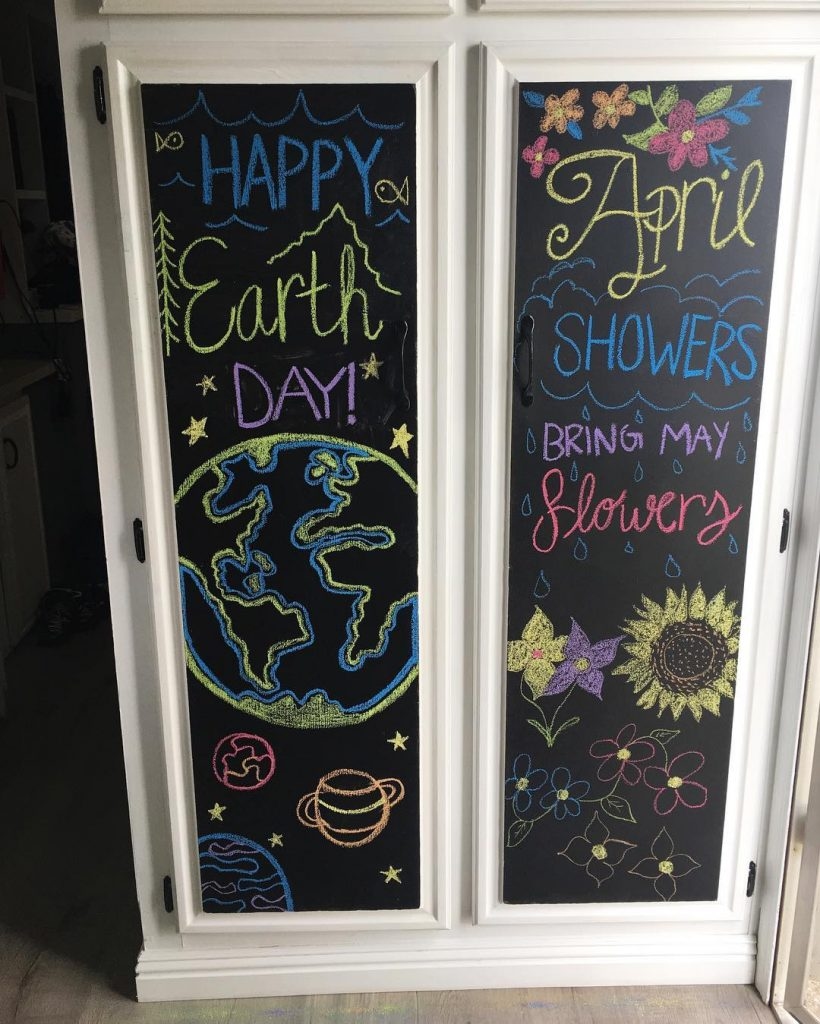 HAPPY
Earth
DAY!
April
SHOWERS
BRING MAY
flowers